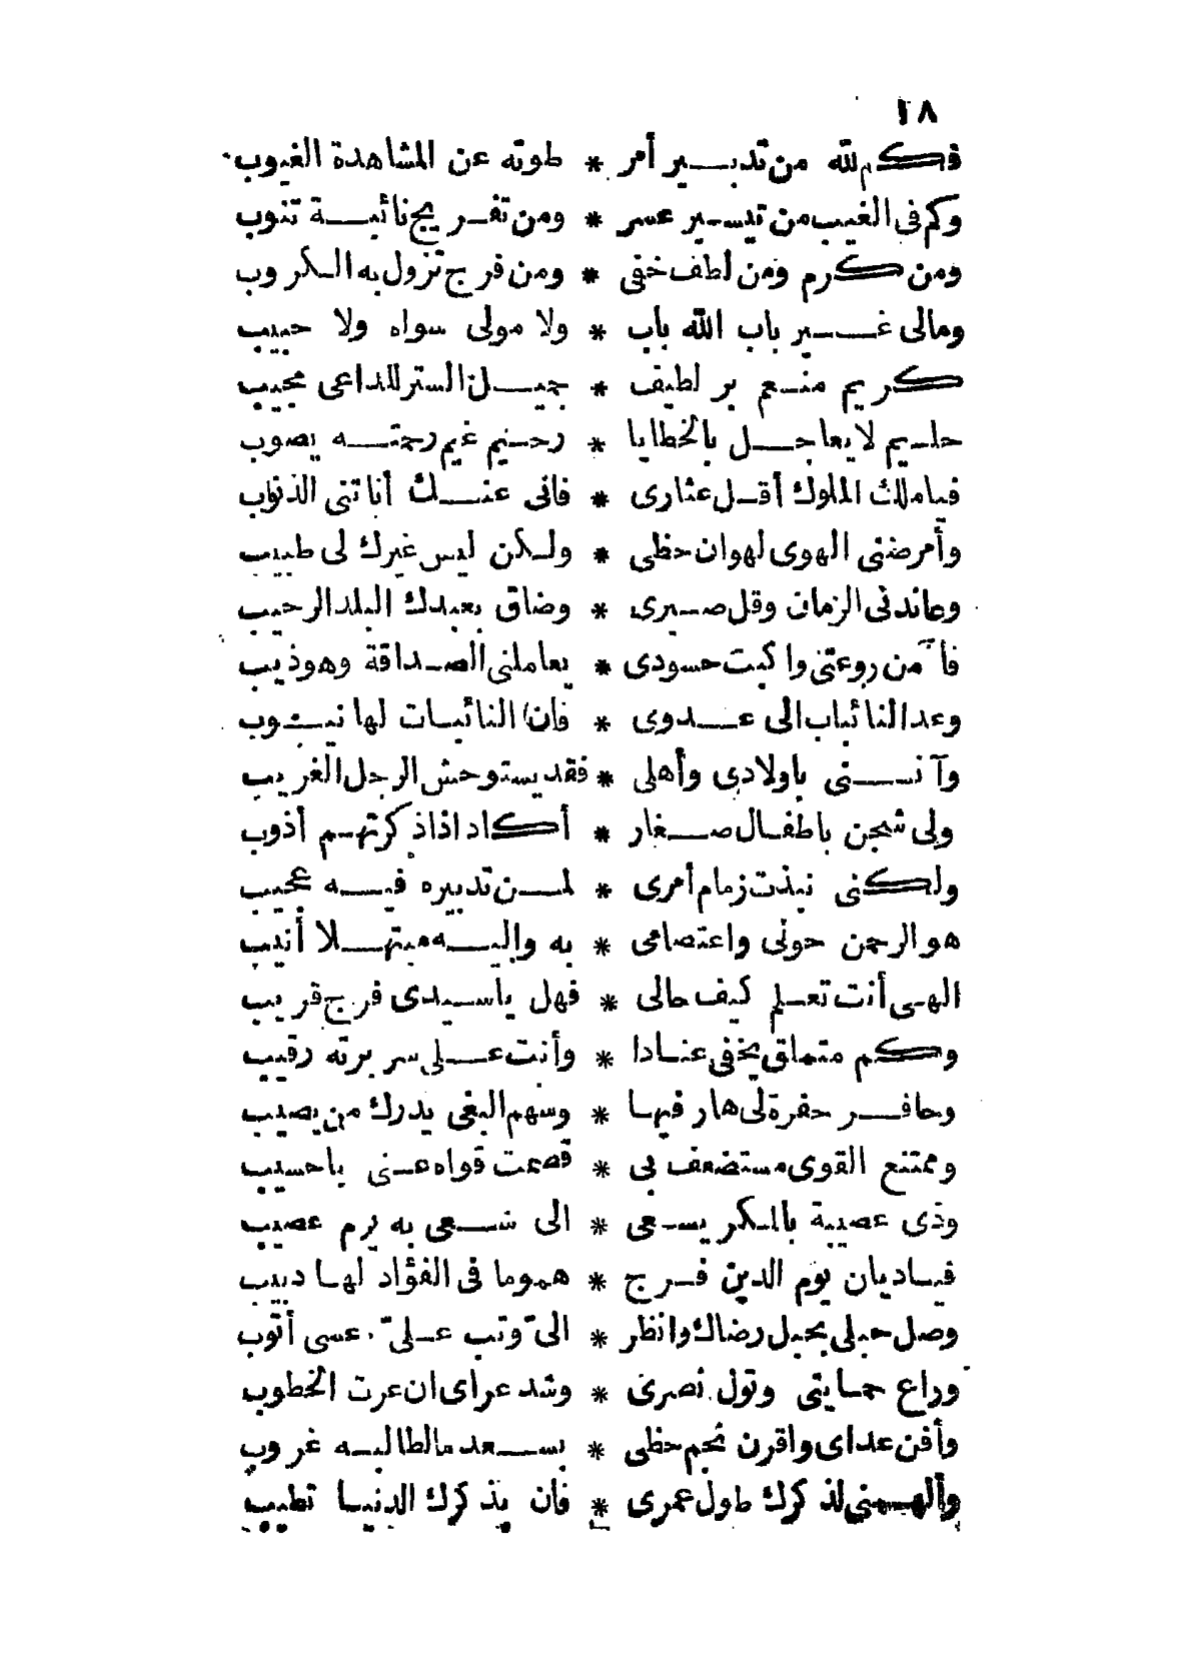 ١٨
فكم لله من تدبير أمر * طوته عن المشاهدة الغيوب
وكم فى الغيب من تيسير عسر * ومن تفريج نائبة تنوب
ومن كرم ومن لطف خفى * ومن فرج تزول به الكروب
ومالى غير باب الله باب * ولا مولى سواه ولا حبيب
كريم منعم بر لطيف * جميل الستر للداعى مجيب
حليم لا يعاجل بالخطايا * رحيم غيم رحمته يصوب
فياملك الملوك أقل عثارى * فانى عنك أناتنى الذنوب
وأمرضنى الهوى لهوان حظى * ولكن ليس غيرك لى طبيب
وعاندنى الزمان وقل صبرى * وضاق بعبدك البلد الرحيب
فآمن روعتى واكبت حسودى * يعاملنى الصداقة وهو ذيب
وعد النائبات الى عدوى * فان النائبات لها نيوب
وآنسنى باولادى وأهلى * فقد يستوحش الرجل الغريب
ولى شجن باطفال صغار * أكاد اذا ذكرتهم أذوب
ولكنى نبذت زمام أمرى * لمن تدبيره فيه عجيب
هو الرحمن حولى واعتصامى * به واليه مبتهلا أنيب
الهى أنت تعلم كيف حالى * فهل ياسيدى فرج قريب
وكم متملق يخفى عنادا * وأنت على سريرته رقيب
وحافر حفرة لى هار فيها * وسهم البغى يدرك من يصيب
وممتنع القوى مستضعف بى * قصمت قواه عنى ياحسيب
وذى عصبية بالمكر يسعى * الى سعى به يوم عصيب
فياديان يوم الدين فرج * هموما فى الفؤاد لها دبيب
وصل حبلى بحبل رضاك وانظر * الىّ وتب علىّ عسى أتوب
وراع حمايتى وتول نصرى * وشد عراى ان عرت الخطوب
وأفن عداى واقرن نجم حظى * بسعد مالطالبه غروب
وألهمنى لذكرك طول عمرى * فان بذكرك الدنيا تطيب